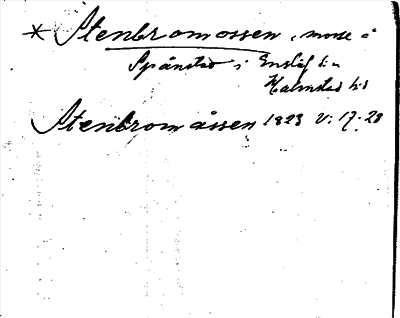 * Stenbromossen, mosse å
Spånstad i Enslöf sn
Halmstad hd
Stenbromåssen 1823 V: 17-28